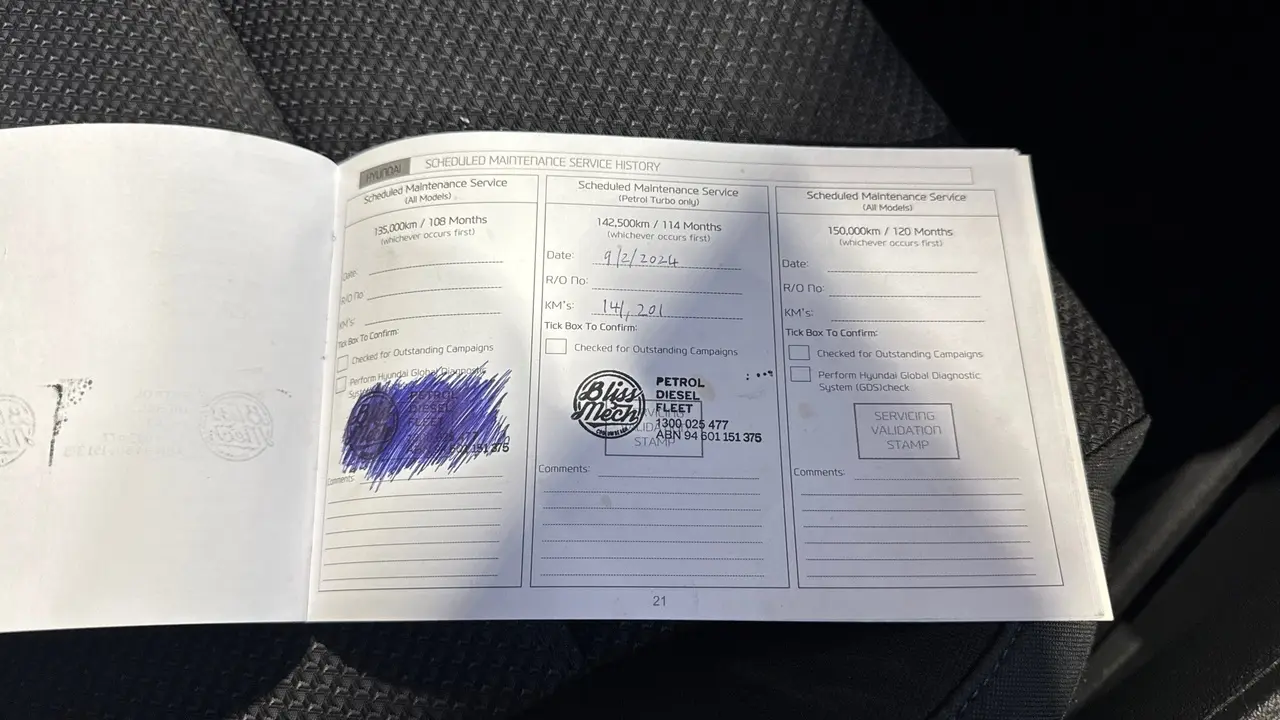 HYUNDAI
SCHEDULED MAINTENANCE SERVICE HISTORY
Scheduled Maintenance Service
(All Models)
135,000km / 108 Months
(whichever occurs first)
Date:
R/O No
KM's:
Tick Box To Confirm:
Checked for Outstanding Campaigns
Perform Hyundai Global Diagnostic
PETROL
DIESEL
FLEET
151 375
Comments:
Scheduled Maintenance Service
(Petrol Turbo only)
142,500km / 114 Months
(whichever occurs first)
Date: 9/2/2024
R/O No:
KM's: 141,201
Tick Box To Confirm:
Checked for Outstanding Campaigns
Bliss
Mech
PETROL
DIESEL
FLEET
1300 025 477
ABN 94 601 151 375
STAMP
Comments:
Scheduled Maintenance Service
(All Models)
150,000km / 120 Months
(whichever occurs first)
Date:
R/O No:
KM's:
Tick Box To Confirm:
Checked for Outstanding Campaigns
Perform Hyundai Global Diagnostic
System (GDS)check
SERVICING
VALIDATION
STAMP
Comments:
21